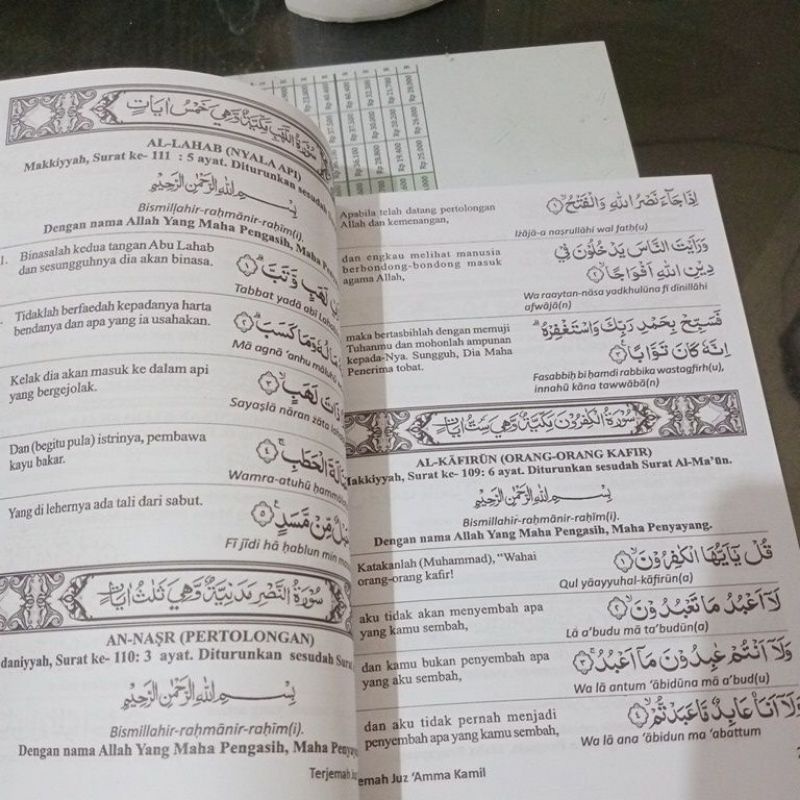 سُوْرَةُ اللَّهَبِ مَكِّيَّةٌ وَهِيَ خَمْسُ اٰيَاتٍ
AL-LAHAB (NYALA API)
Makkiyyah, Surat ke- 111 : 5 ayat. Diturunkan sesudah
بِسْمِ اللهِ الرَّحْمٰنِ الرَّحِيْمِ
Bismillahir-raḥmānir-raḥīm(i).
Dengan nama Allah Yang Maha Pengasih, Maha
Binasalah kedua tangan Abu Lahab
dan sesungguhnya dia akan binasa.
لَهَبٍ وَّتَبَّ ۝١
Tabbat yadā abī
Tidaklah berfaedah kepadanya harta
bendanya dan apa yang ia usahakan.
مَالُهٗ وَمَا كَسَبَ ۝٢
Mā agnā 'anhu māluhū
Kelak dia akan masuk ke dalam api
yang bergejolak.
ذَاتَ لَهَبٍ ۝٣
Sayaṣlā nāran żāta
Dan (begitu pula) istrinya, pembawa
kayu bakar.
الْحَطَبِ ۝٤
Wamra-atuhū
Yang di lehernya ada tali dari sabut.
مِّنْ مَّسَدٍ ۝٥
Fī jīdi hā ḥablun min
سُوْرَةُ النَّصْرِ مَدَنِيَّةٌ وَّهِيَ ثَلٰثُ اٰيَاتٍ
AN-NAṢR (PERTOLONGAN)
daniyyah, Surat ke- 110: 3 ayat. Diturunkan sesudah
بِسْمِ اللهِ الرَّحْمٰنِ الرَّحِيْمِ
Bismillahir-raḥmānir-raḥīm(i).
Dengan nama Allah Yang Maha Pengasih, Maha
Terjemah
Apabila telah datang pertolongan
Allah dan kemenangan,
اِذَا جَاۤءَ نَصْرُ اللهِ وَالْفَتْحُ ۝١
Iżājā-a naṣrullāhi wal fatḥ(u)
dan engkau melihat manusia
berbondong-bondong masuk
agama Allah,
وَرَاَيْتَ النَّاسَ يَدْخُلُوْنَ فِيْ
دِيْنِ اللهِ اَفْوَاجًا ۝٢
Wa raaytan-nāsa yadkhulūna fī dīnillāhi
afwājā(n)
maka bertasbihlah dengan memuji
Tuhanmu dan mohonlah ampunan
kepada-Nya. Sungguh, Dia Maha
Penerima tobat.
فَسَبِّحْ بِحَمْدِ رَبِّكَ وَاسْتَغْفِرْهُ
اِنَّهٗ كَانَ تَوَّابًا ۝٣
Fasabbiḥ bi ḥamdi rabbika wastagfirh(u),
innahū kāna tawwābā(n)
سُوْرَةُ الْكٰفِرُوْنَ مَكِّيَّةٌ وَّهِيَ سِتُّ اٰيَاتٍ
AL-KĀFIRŪN (ORANG-ORANG KAFIR)
Makkiyyah, Surat ke- 109: 6 ayat. Diturunkan sesudah Surat Al-Ma'ūn.
بِسْمِ اللهِ الرَّحْمٰنِ الرَّحِيْمِ
Bismillahir-raḥmānir-raḥīm(i).
Dengan nama Allah Yang Maha Pengasih, Maha Penyayang.
Katakanlah (Muhammad), "Wahai
orang-orang kafir!
قُلْ يٰٓاَيُّهَا الْكٰفِرُوْنَ ۝١
Qul yāayyuhal-kāfirūn(a)
aku tidak akan menyembah apa
yang kamu sembah,
لَآ اَعْبُدُ مَا تَعْبُدُوْنَ ۝٢
Lā a'budu mā ta'budūn(a)
dan kamu bukan penyembah apa
yang aku sembah,
وَلَآ اَنْتُمْ عٰبِدُوْنَ مَآ اَعْبُدُ ۝٣
Wa lā antum 'ābidūna mā a'bud(u)
dan aku tidak pernah menjadi
penyembah apa yang kamu sembah,
وَلَآ اَنَا۠ عَابِدٌ مَّا عَبَدْتُّمْ ۝٤
Wa lā ana 'ābidun ma 'abattum
emah Juz 'Amma Kamil